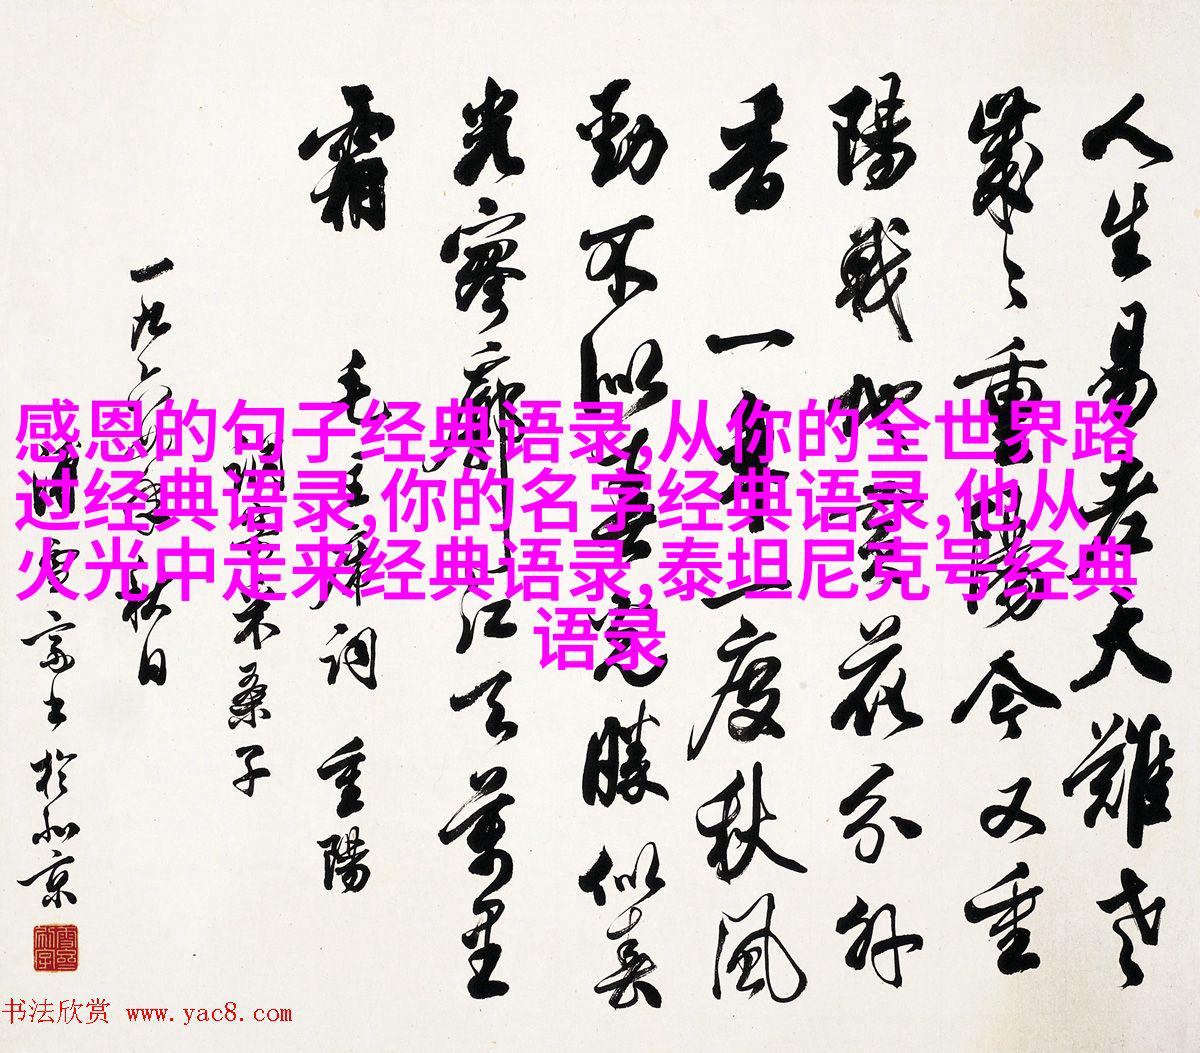 人生易老天難老
歲々重陽今又重
陽戰地黃花分外
香一年一度秋風
勁不似春光勝似春
光寥廓江天萬里
霜
毛主席詞 重陽
調寄采桑子
一九六 年秋日
溥雪齋書於北京
感恩的句子经典语录,从你的全世界路
过经典语录,你的名字经典语录,他从
火光中走来经典语录,泰坦尼克号经典
语录
书法欣赏 www.yac8.com